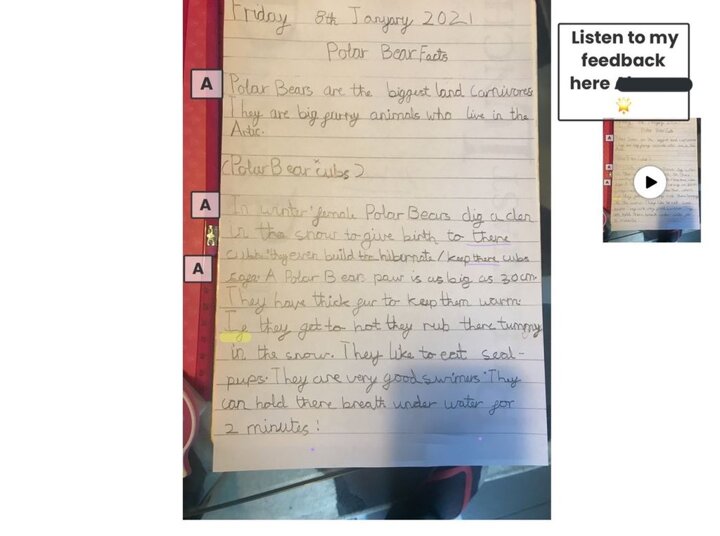 Friday 8th January 2021
Polar Bear Facts
A
Polar Bears are the biggest land Carnivores
They are big furry animals who live in the
Artic.
(Polar Bear cubs)
A
In winter female Polar Bears dig a den
in the snow to give birth to there
cubs they even build for hibernate / keep there cubs
A
A Polar Bears paw is as big as 30cm.
They have thick fur to keep them warm.
If they get to hot they rub there tummy
in the snow. They like to eat seal-
pups. They are very good swimers. They
can hold there breath under water for
2 minutes!
Listen to my
feedback
here